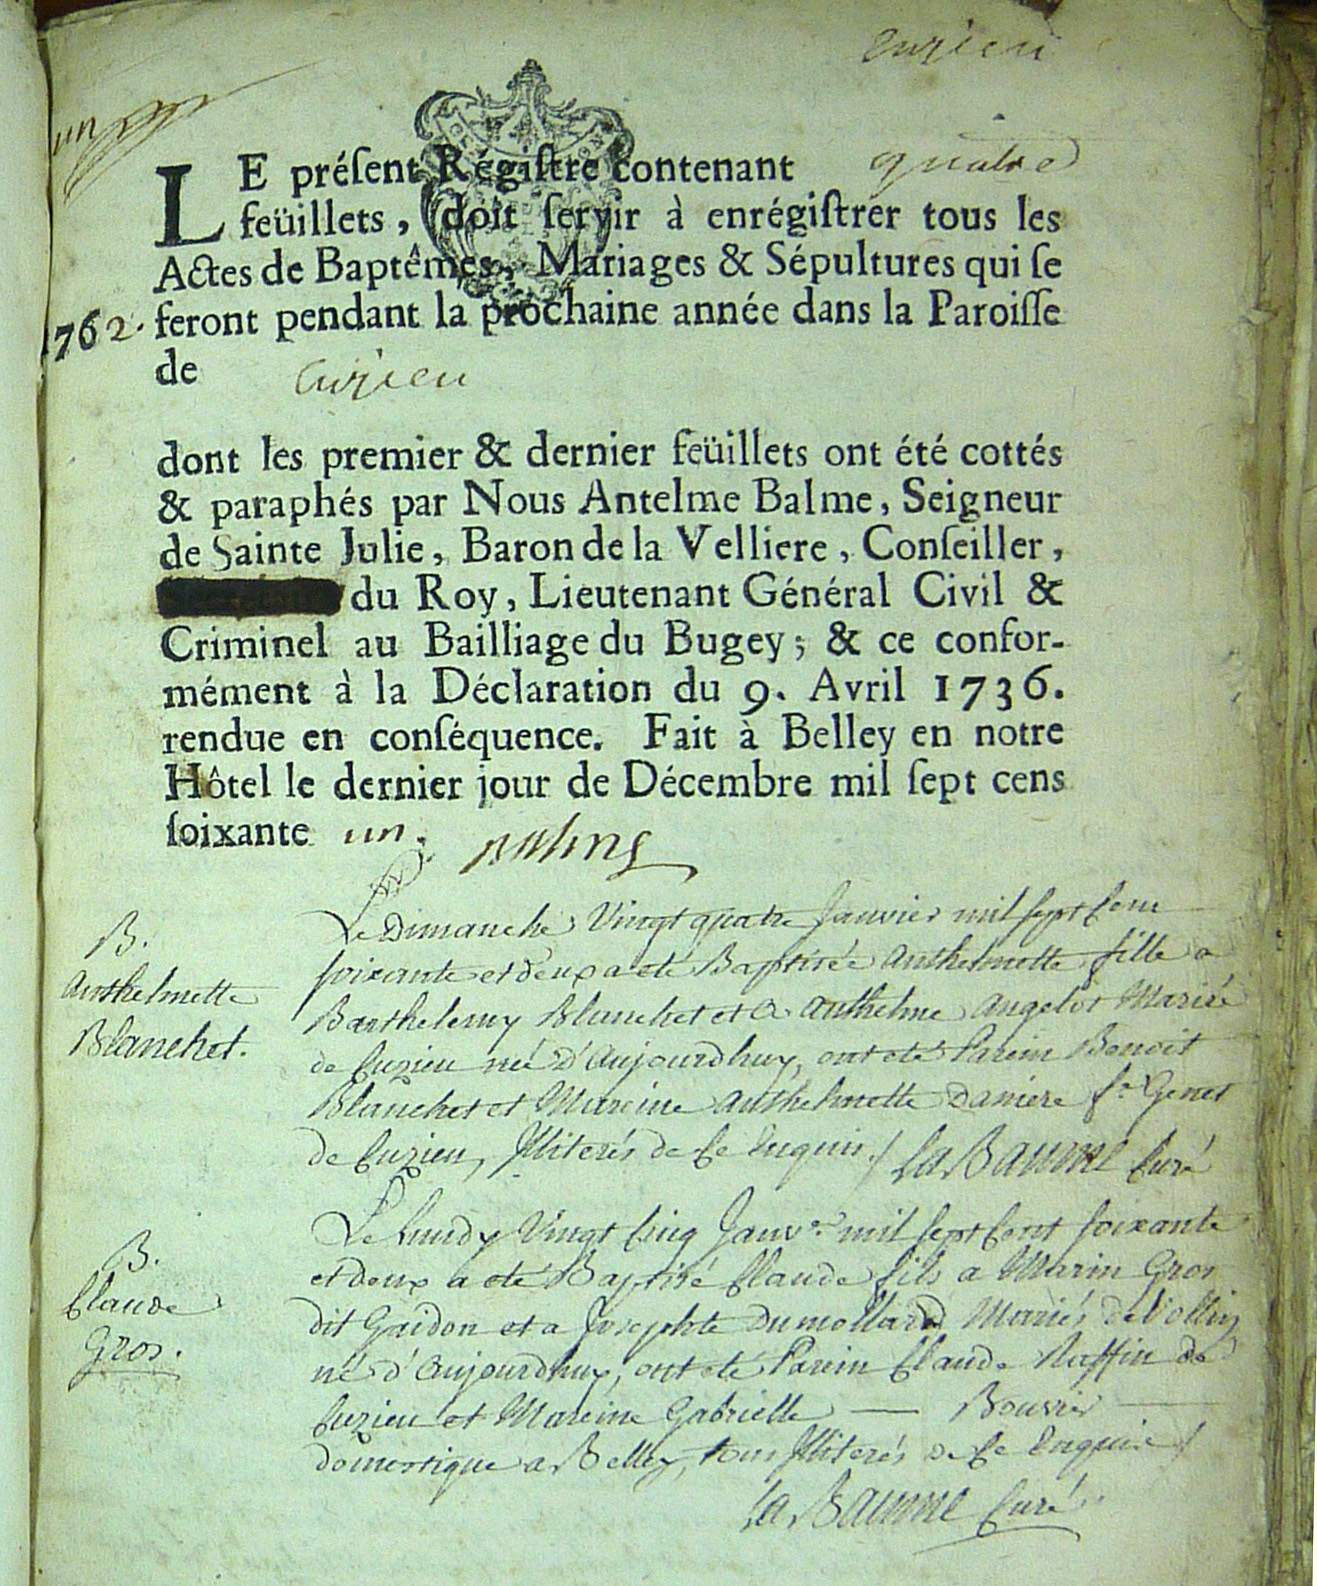 Cuzieu
un
LE préſent Régiſtre contenant quatre
feüillets, doit ſervir à enrégiſtrer tous les
Actes de Baptêmes, Mariages & Sépultures qui ſe
1762. feront pendant la prochaine année dans la Paroiſſe
de Cuzieu
dont les premier & dernier feüillets ont été cottés
& paraphés par Nous Antelme Balme, Seigneur
de Sainte Julie, Baron de la Velliere, Conſeiller,
du Roy, Lieutenant Général Civil &
Criminel au Bailliage du Bugey; & ce confor-
mément à la Déclaration du 9. Avril 1736.
rendue en conſéquence. Fait à Belley en notre
Hôtel le dernier jour de Décembre mil ſept cens
ſoixante un.
B.
Anthelmette
Blanchet.
Le Dimanche Vingt quatre Janvier mil sept Cent
soixante et deux a eté Baptisée Anthelmette fille a
Barthelemy Blanchet et a Anthelme Angelot Mariés
de Cuzieu née d'Aujourdhuy, ont eté Parein Benoit
Blanchet et Mareine Anthelmette Daniere fe Genet
de Cuzieu, Illiterés de Ce Enquis / La Baume Curé
B.
Claude
Gros.
Le Lundy Vingt Cinq Janvr mil sept Cent soixante
et deux a eté Baptisé Claude fils a Marin Gros
dit Gaidon et a Josephte Dumollard Mariés de Vollin
né d'Aujourdhuy, ont eté Parein Claude Ruffin de
Cuzieu et Mareine Gabrielle — Bouvier —
domestique a Belley, tous Illiterés de Ce Enquis /
La Baume Curé